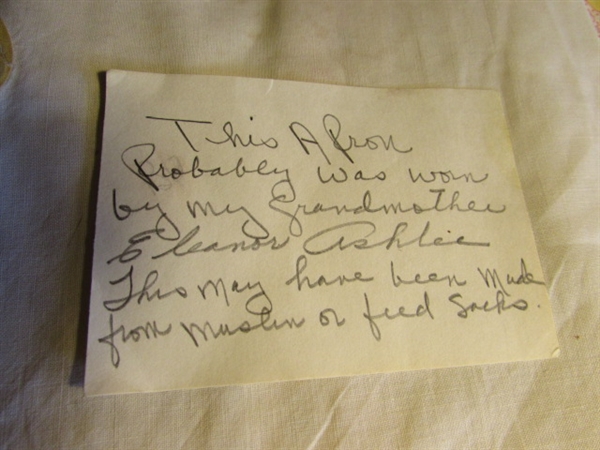 This Apron
Probably was worn
by my Grandmother
Eleanor Ashlie
This may have been made
from muslin or feed sacks.